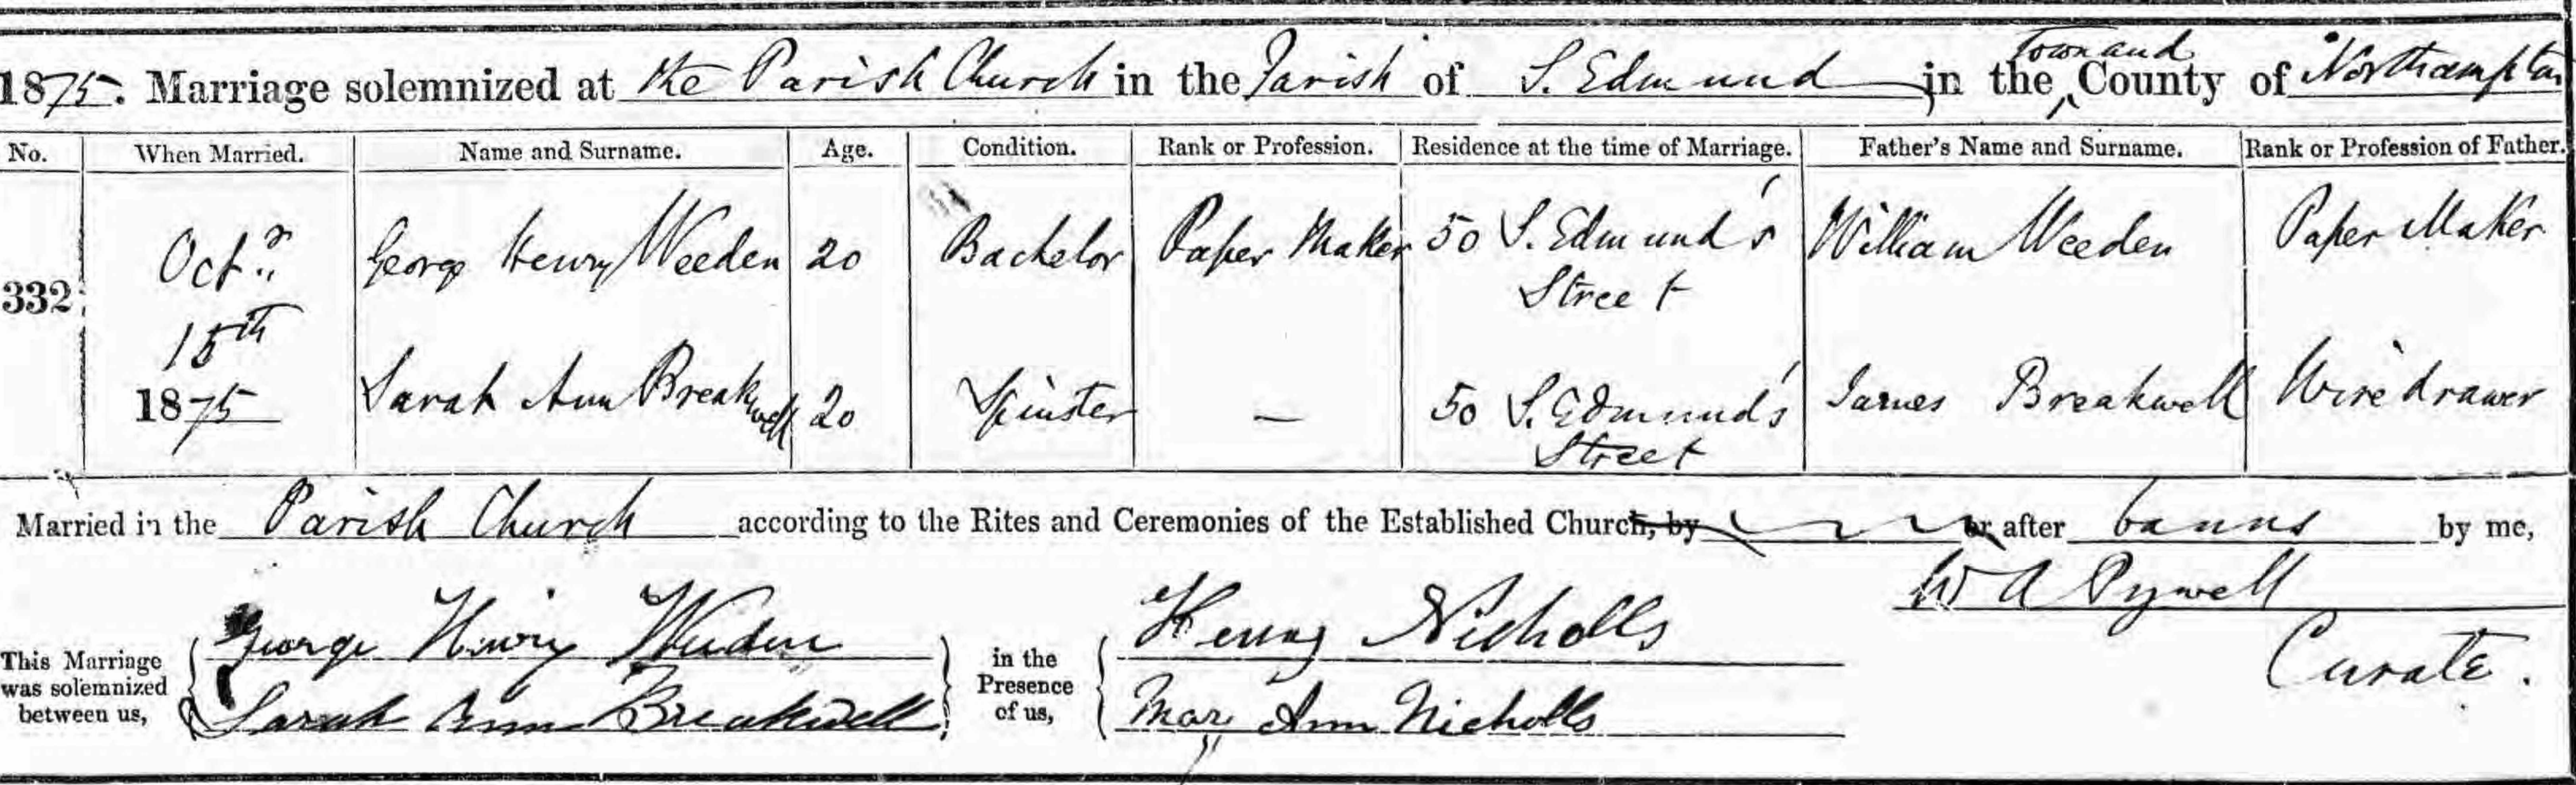 1875. Marriage solemnized at the Parish Church in the Parish of S. Edmund in the Town and County of Northampton
No. When Married. Name and Surname. Age. Condition. Rank or Profession. Residence at the time of Marriage. Father's Name and Surname. Rank or Profession of Father.
332 Octr. 15th 1875
George Henry Weeden 20 Bachelor Paper Maker 50 S. Edmund's Street William Weeden Paper Maker
Sarah Ann Breakwell 20 Spinster — 50 S. Edmund's Street James Breakwell Wiredrawer
Married in the Parish Church according to the Rites and Ceremonies of the Established Church, by or after banns by me,
W A Pywell
Curate.
This Marriage was solemnized between us,
George Henry Weeden
Sarah Ann Breakwell
in the Presence of us,
Henry Nicholls
Mary Ann Nicholls